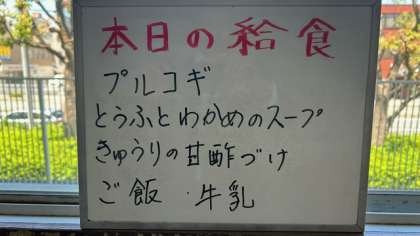 本日の給食
プルコギ
とうふとわかめのスープ
きゅうりの甘酢づけ
ご飯・牛乳